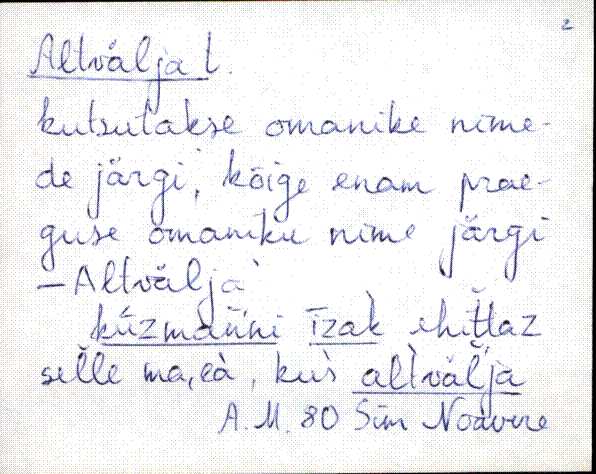 2
Altvälja t.
kutsutakse omanike nime-
de järgi, kõige enam prae-
guse omaniku nime järgi
– Altvälja
kǖzmańńi īzàk ehittaz
selle ma, kus altvälja
A. M. 80 Sim Nõavere